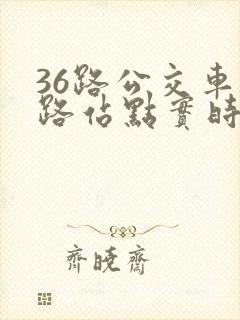 36路公交車
路佔點實時
齊曉齋